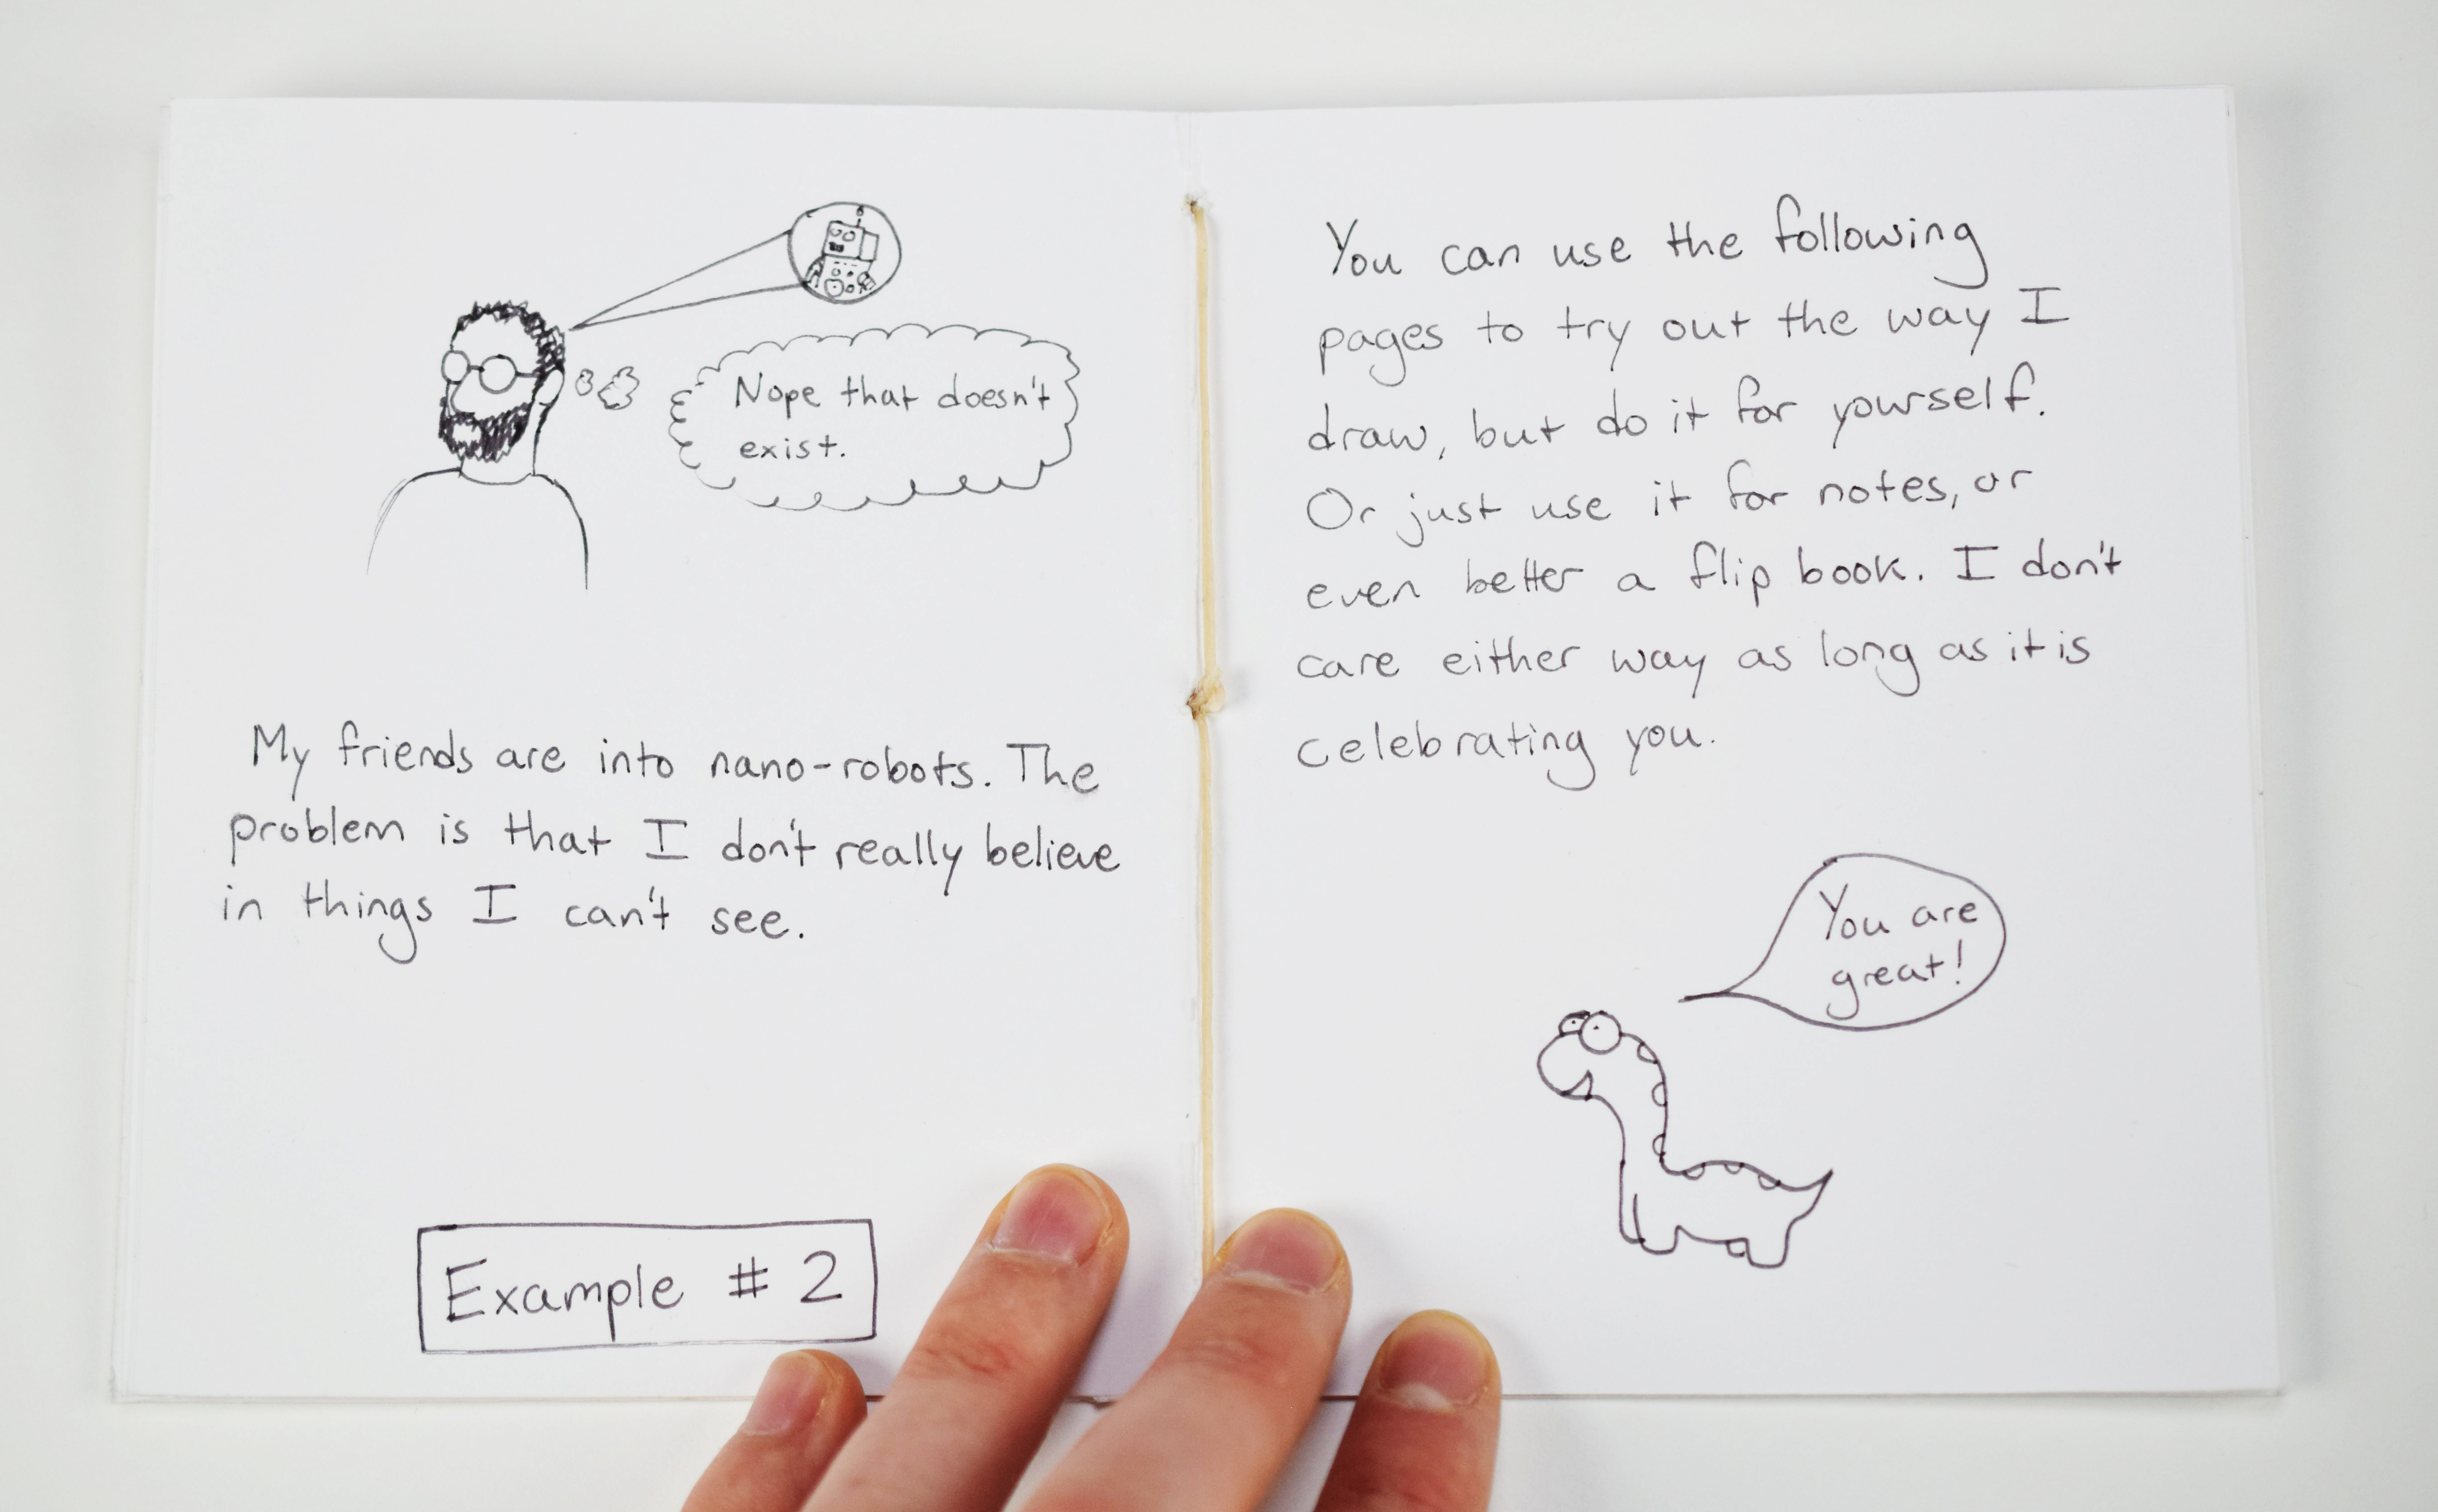 Nope that doesn't
exist.
My friends are into nano-robots. The
problem is that I don't really believe
in things I can't see.
Example # 2
You can use the following
pages to try out the way I
draw, but do it for yourself.
Or just use it for notes, or
even better a flip book. I don't
care either way as long as it is
celebrating you.
You are
great!